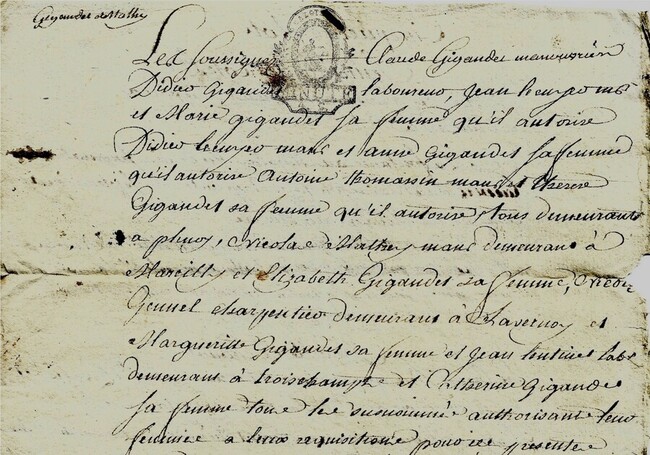 Gigandet
Les Soussignés Claude Gigandet manouvrier
Didier Gigandet laboureur, Jean
et Marie Gigandet sa femme qu'il autorise
Didier et anne Gigandet sa femme
qu'il autorise Antoine thomassin manr et therese
Gigandet sa femme qu'il autorise, tous demeurants
a , Nicolas Mathey manr demeurant à
Marcilly et Elizabeth Gigandet sa femme,
charpentier demeurant à Lavernoy et
Margueritte Gigandet sa femme et Jean
demeurant à troischamps et Catherine Gigandet
sa femme tous les susnommés authorisant leur
femmes a leurs requisitions pour ces presentes